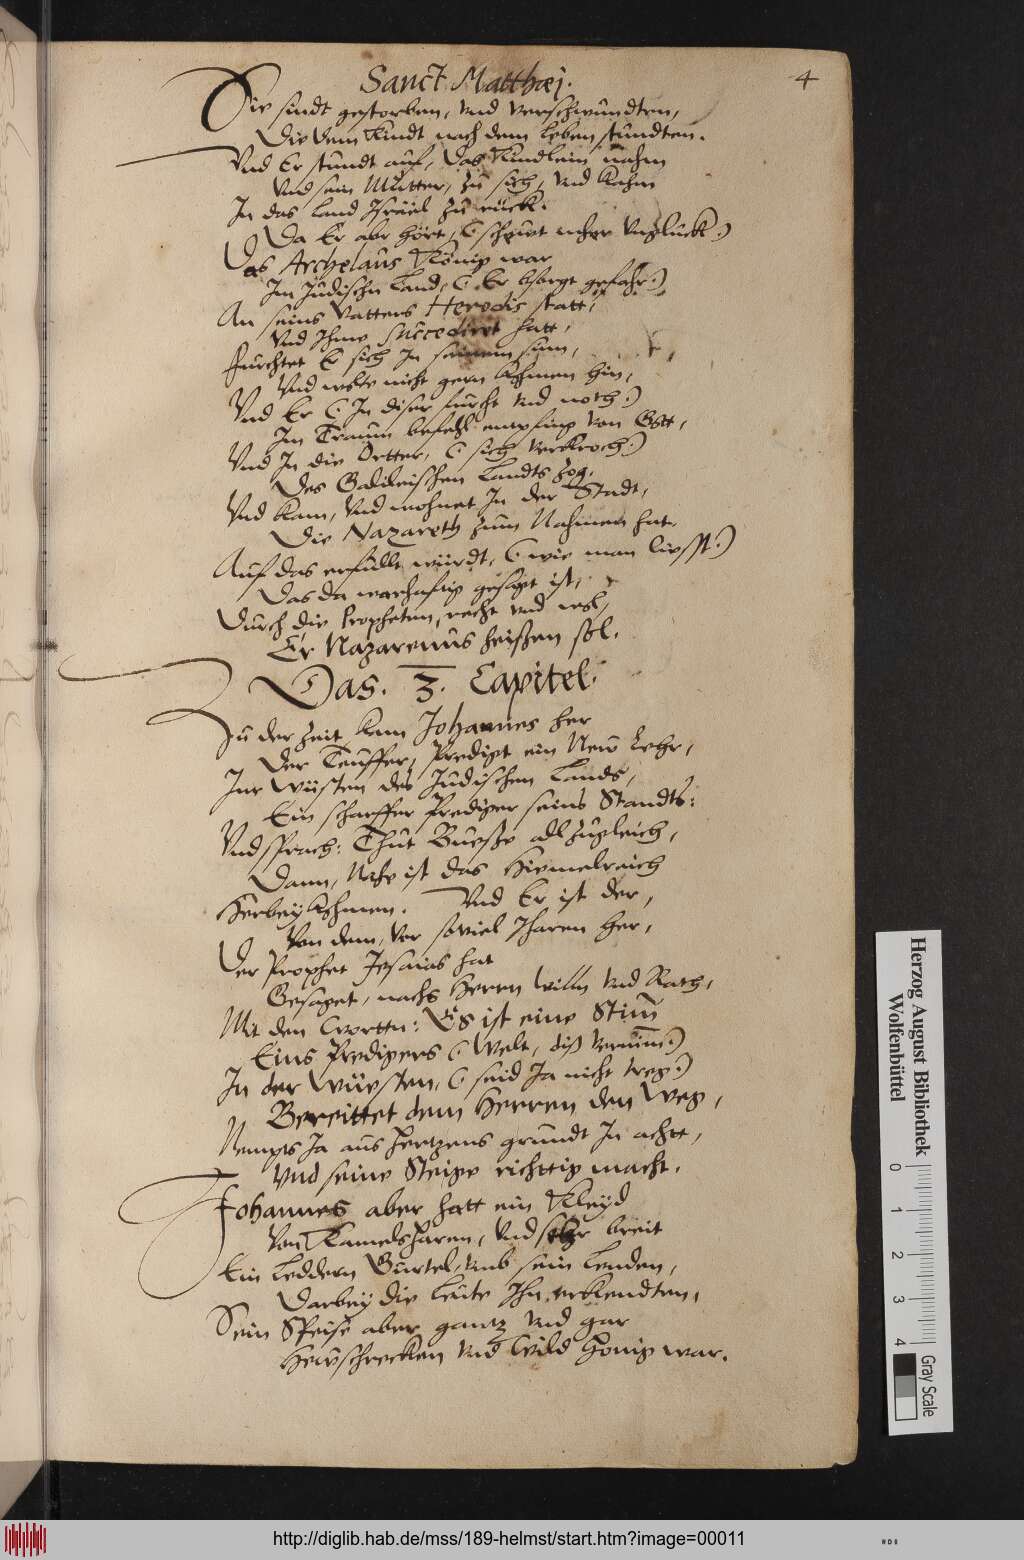 Sanct Matthæi.
4
Sie sindt gestorben, vnd verschwundten,
Die dem Kindt nach dem leben stundten.
Vnd Er stundt auf, das Kindlein nahm
Vnd sein Mutter, zu sich, vnd kahm
In das land Israel zu rück.
Da Er abr hört, (: schewt mehr vnglück :)
Das Archelaus König war
Im Jüdischn Land, (: Er bsorgt gefahr :)
An seins Vatters Herodis statt,
Vnd Ihme succedirt hatt,
furchtet Er sich In seinem sinn,
Vnd wolte nicht gern kohmen hin,
Vnd Er (: In diser furcht vnd noth :)
Im Traum befehl empfing von Gott,
Vnd In die Ortter, (: sich verkroch :)
Des Galileischen Landts zog.
Vnd kam, vnd wohnet In der Stadt,
Die Nazareth zum Nahmen hat.
Auf das erfüllt würdt, (: wie man liesst :)
Das da warhafftig gesagt ist,
Durch die Propheten, recht vnd wol,
Er Nazarenus heissen sol.
Das. 3. Capitel.
Zu der Zeit kam Johannes her
Der Teuffer, Predigt ein New Lehr,
Inr Wüsten des Jüdischen Lands,
Ein scharffer Prediger seins Standts:
Vnd sprach: Thut Buesse all zugleich,
Dann, Nahe ist das Himelreich
Herbey kohmen. Vnd Er ist der,
Von dem, vor soviel Jharen her,
Der Prophet Jesaias hat
Gesaget, nachs Herrn willn vnd Rath,
Mit den Wortten: Es ist eine Stim̄
Eins Predigers (: Welt, diß vernim̄ :)
In der Wüesten, (: seid Ja nicht treg :)
Bereittet dem Herren den Weg,
Nempts Ja aus hertzens grundt In achtt,
Vnd seine Steige richttig macht.
Johannes aber hatt ein Kleyd
Von Kamelsharen, vnd sehr breit
Ein Leddern Gurtel, vmb sein Lenden,
Darbey die Leute Ihn erkendten,
Sein Speise aber gantz vnd gar
Hewschrecken vnd Wild Honig war.
Herzog August Bibliothek
Wolfenbüttel
0 1 2 3 4
Gray Scale
http://diglib.hab.de/mss/189-helmst/start.htm?image=00011